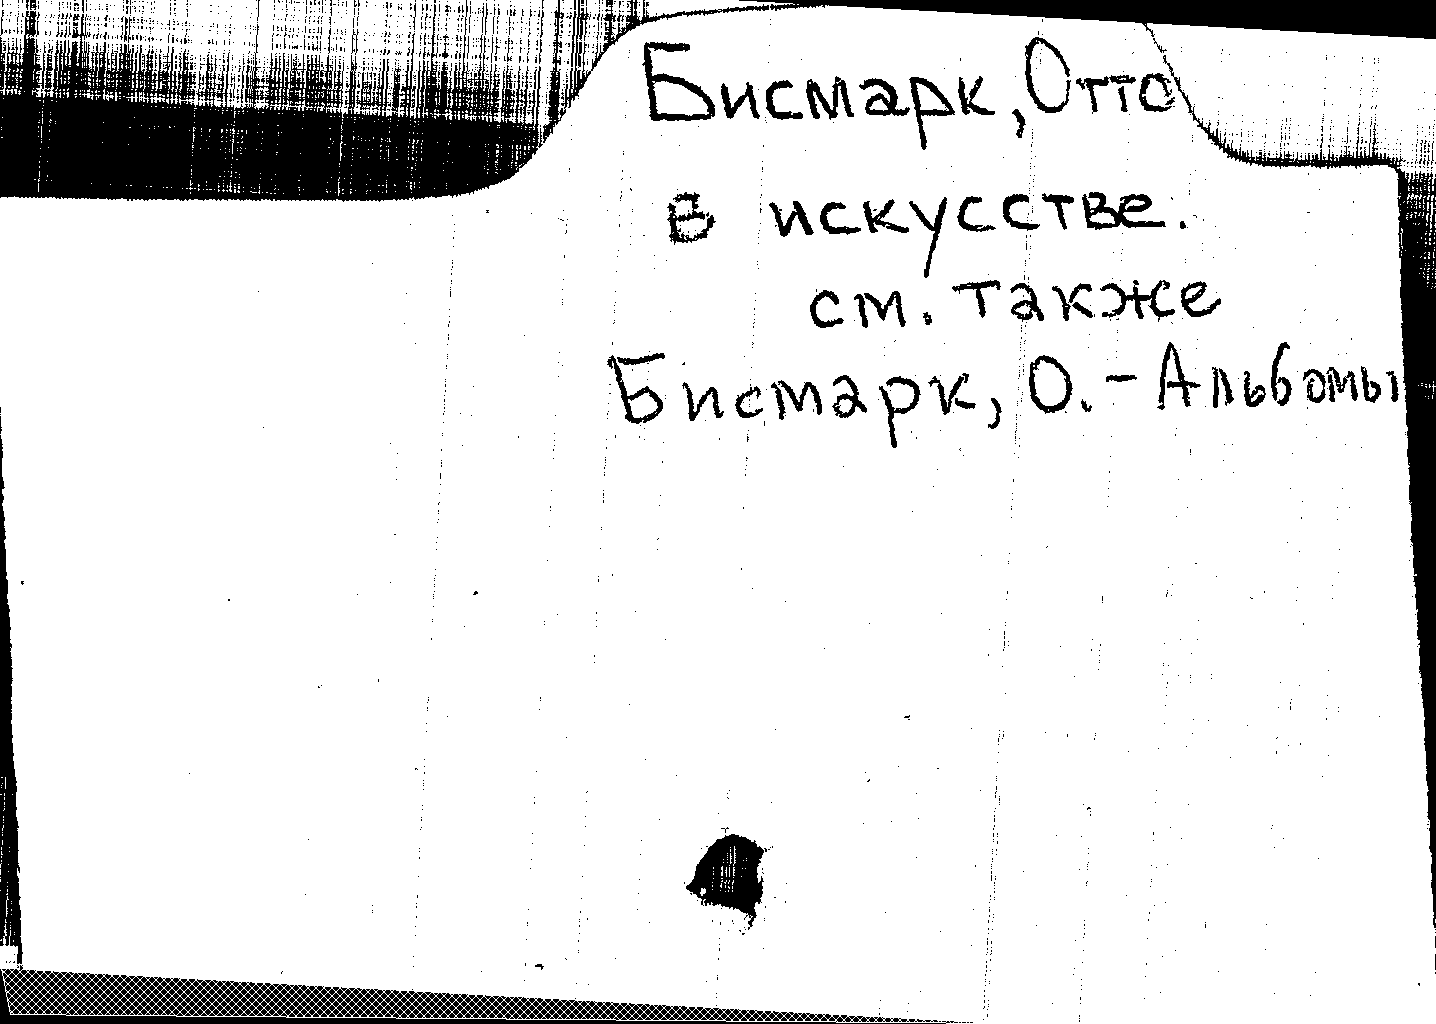 Бисмарк, Отто
в искусстве.
см. также
Бисмарк, О. - Альбомы